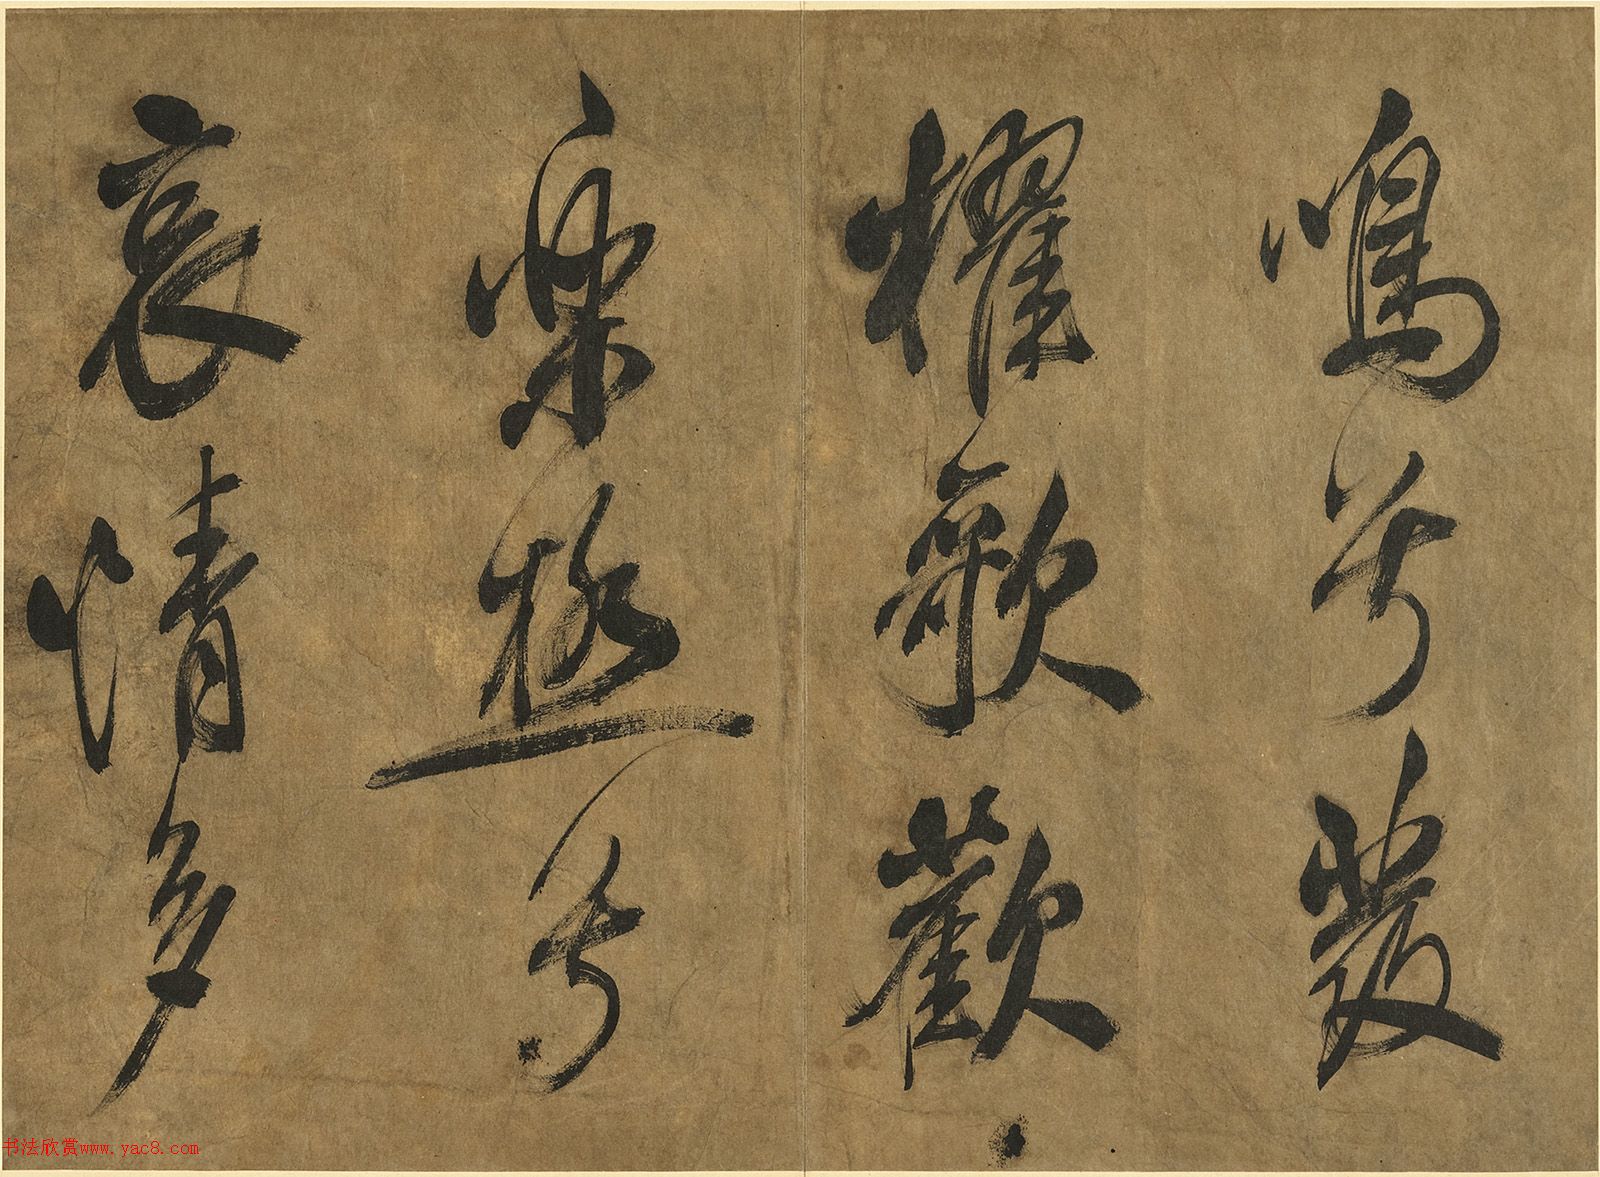 鳴兮發
櫂歌歡
樂極兮
哀情多
书法欣赏www.yac8.com